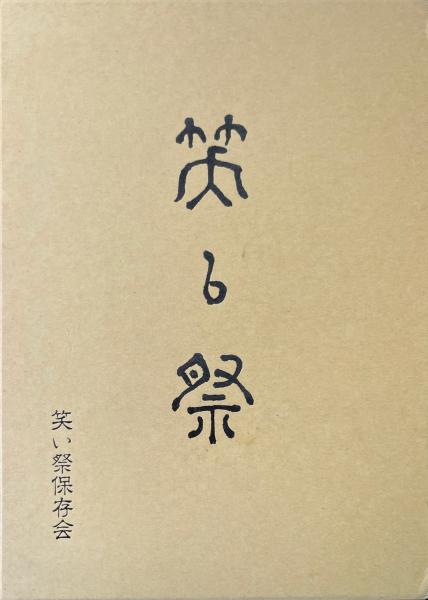 笑い祭
笑い祭保存会